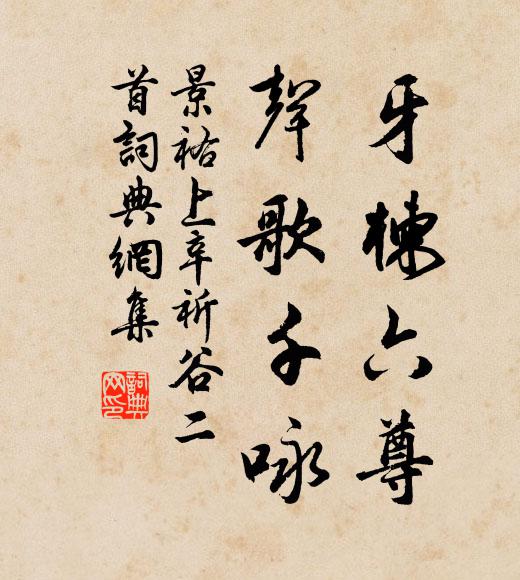 牙六尊
聲歌千詠
景祐上辛祈谷二
首詞典網集
詞典
网印